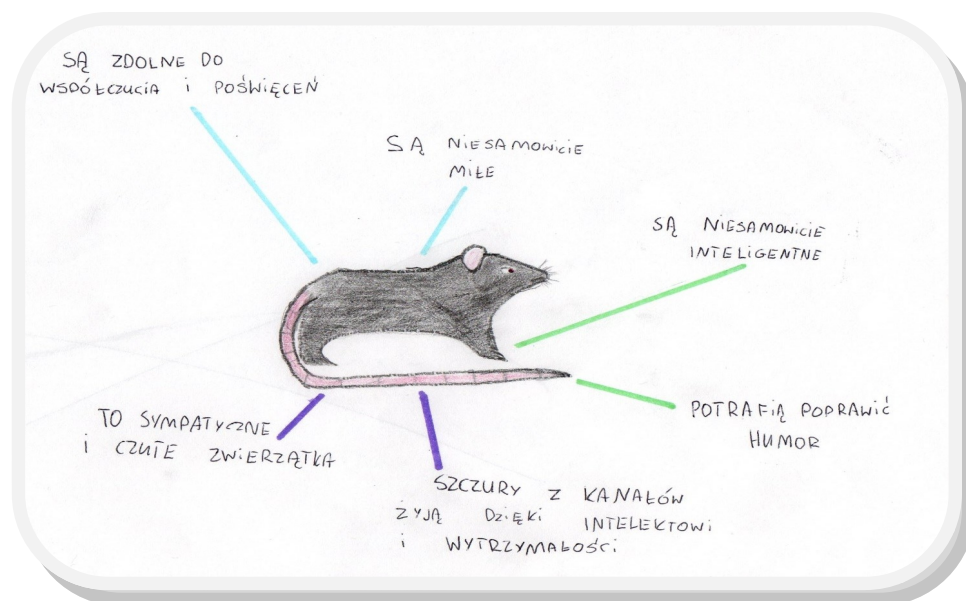 SĄ ZDOLNE DO
WSPÓŁCZUCIA i POŚWIĘCEŃ
SĄ NiESAMOWiCiE
MiŁE
SĄ NiESAMOWiCiE
INTELiGENTNE
POTRAFiĄ POPRAWiĆ
HUMOR
TO SYMPATYCZNE
i CZUŁE ZWiERZĄTKA
SZCZURY Z KANAŁÓW
ŻYJĄ DZiĘKi INTELEKTOWi
i WYTRZYMAŁOŚCi